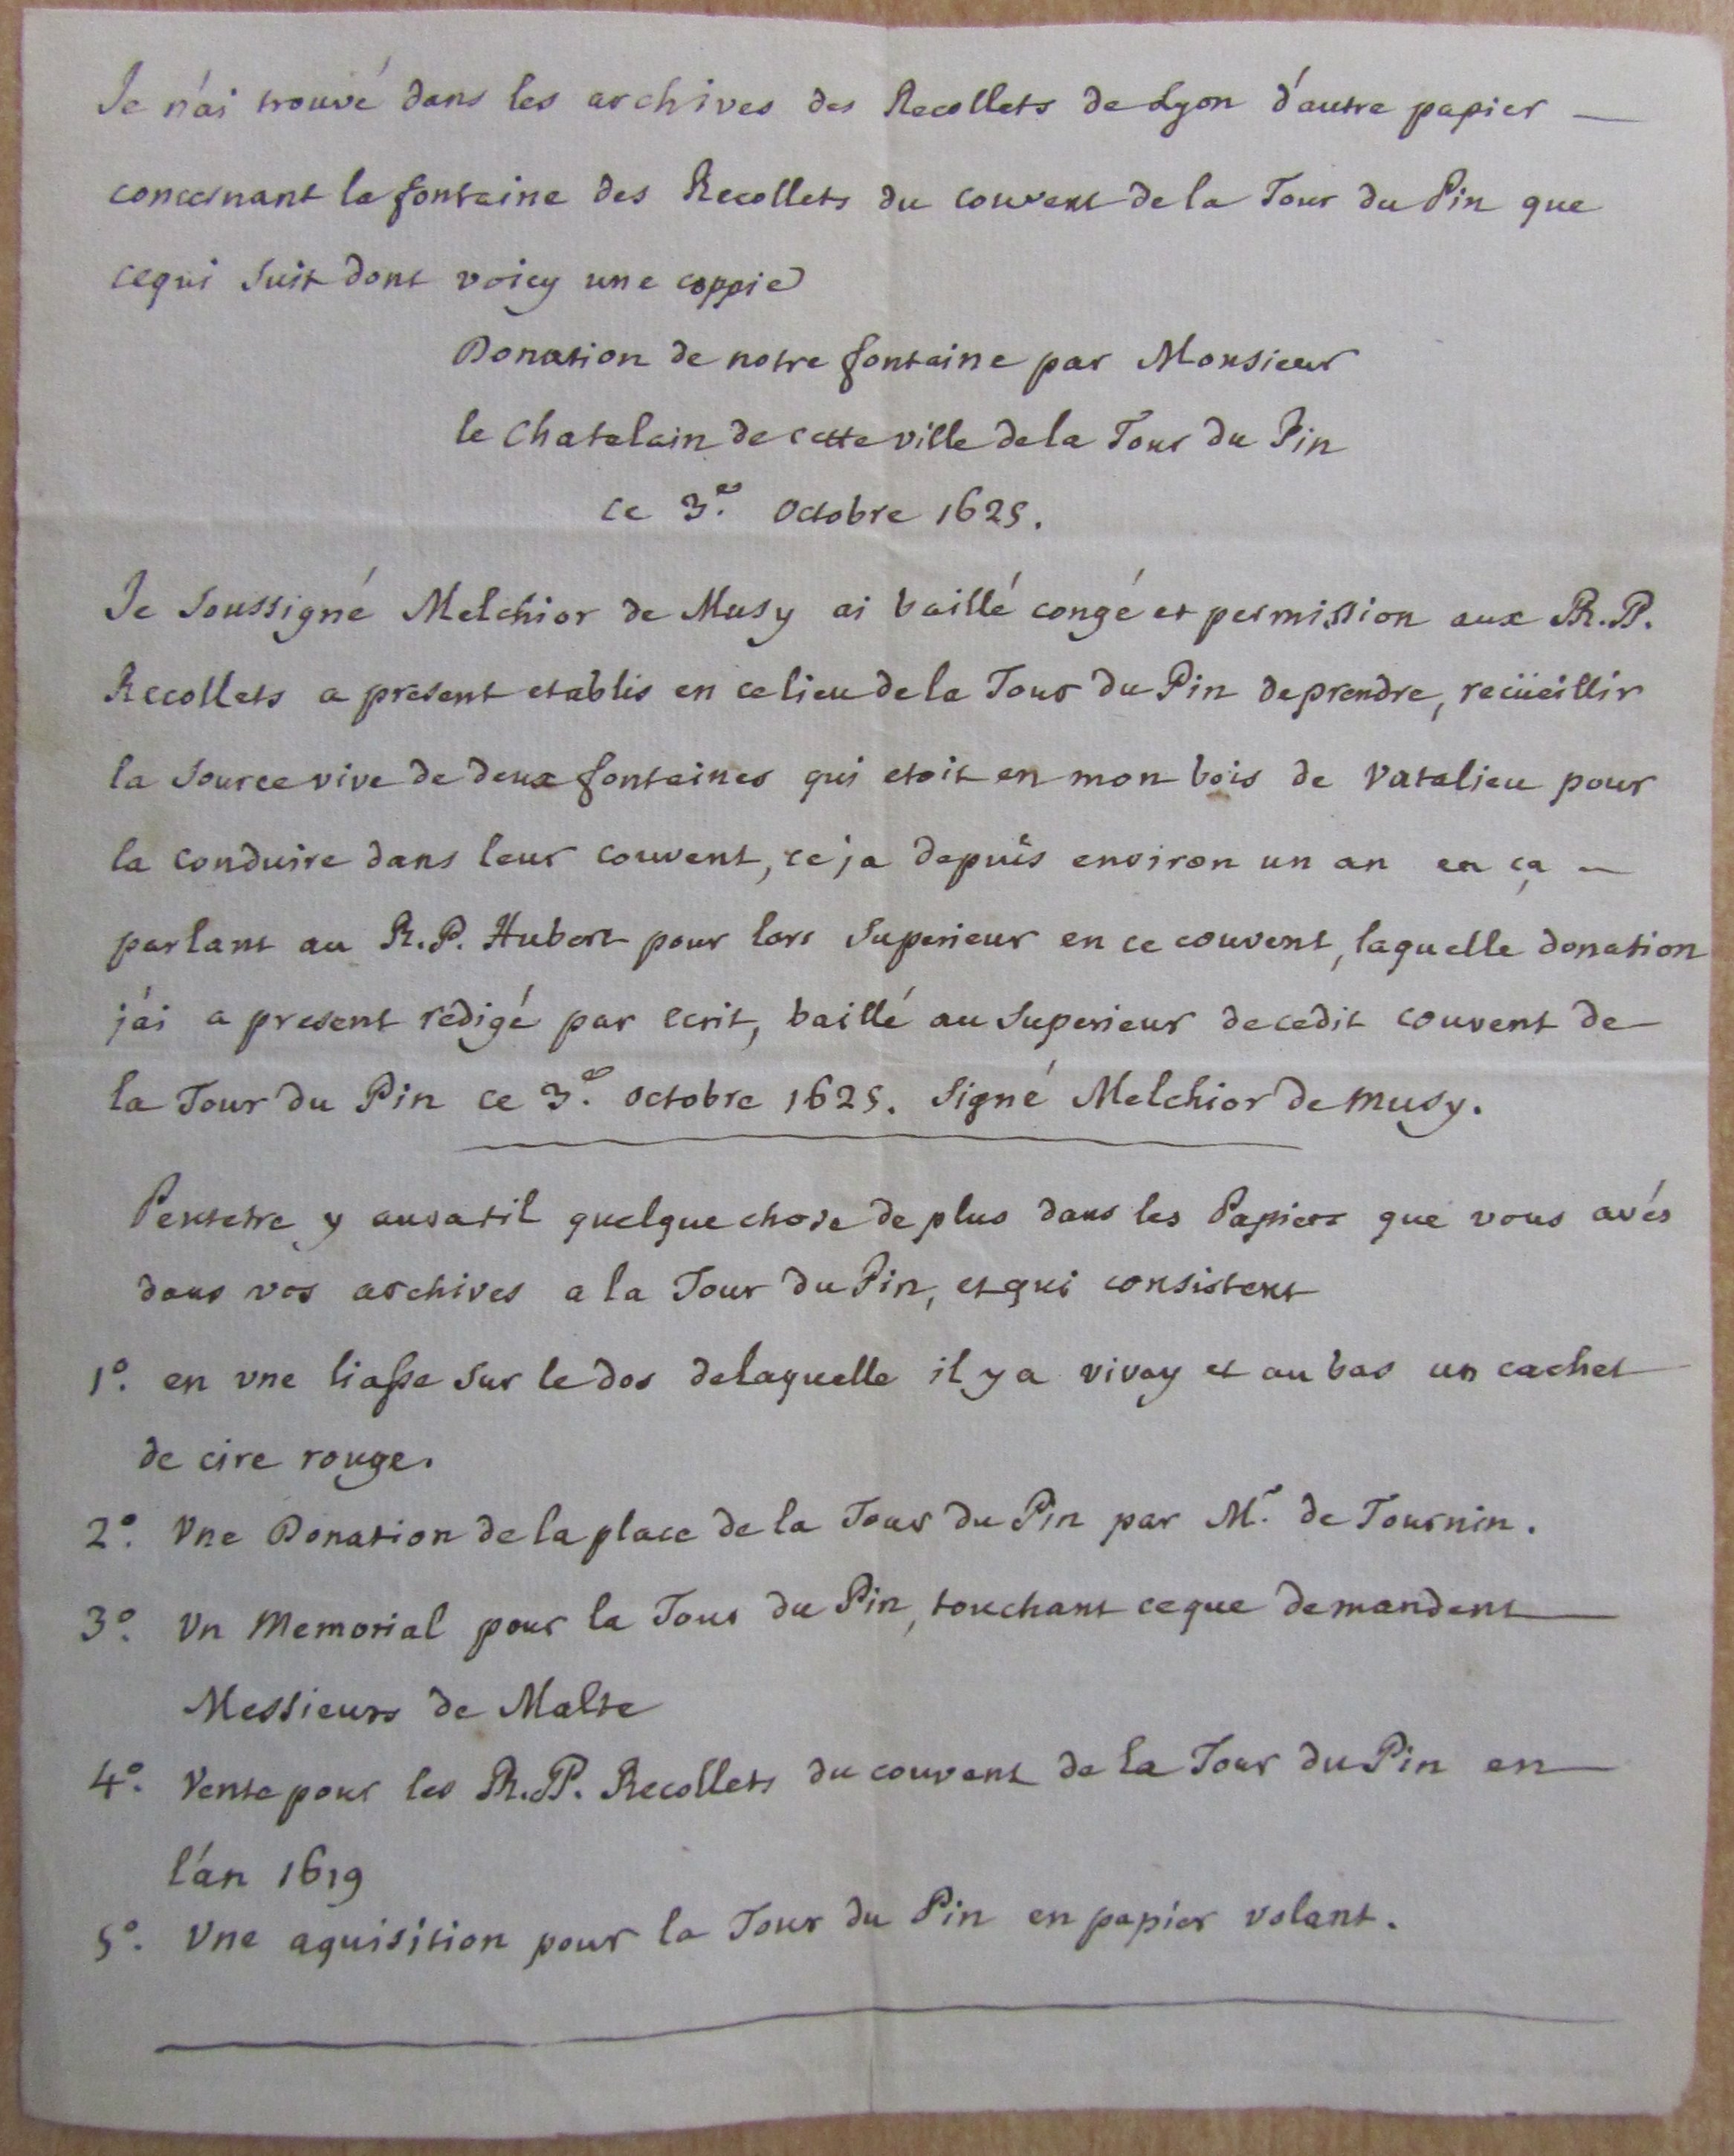 Je n'ai trouvé dans les archives des Recollets de Lyon d'autre papier —
concernant la fontaine des Recollets du couvent de la Tour du Pin que
ce qui suit dont voicy une coppie
Donation de notre fontaine par Monsieur
le Chatelain de cette ville de la Tour du Pin
ce 3.e Octobre 1625.
Je soussigné Melchior de Musy ai baillé congé et permission aux R.P.
Recollets a present etablis en ce lieu de la Tour du Pin de prendre, recüeillir
la source vive de deux fontaines qui etoit en mon bois de Vatalieu pour
la conduire dans leur couvent, ce ja depuis environ un an en ça —
parlant au R.P. Hubert pour lors superieur en ce couvent, laquelle donation
j'ai a present redigé par ecrit, baillé au superieur de cedit couvent de —
la Tour du Pin ce 3.e octobre 1625. signé Melchior de musy.
Peutetre y auratil quelque chose de plus dans les Papiers que vous avés
dans vos archives a la Tour du Pin, et qui consistent
1.o en vne liasse sur le dos delaquelle il y a vivay et au bas un cachet
de cire rouge.
2.o Vne Donation de la place de la Tour du Pin par M.r de Tournin.
3.o Vn Memorial pour la Tour du Pin, touchant ce que demandent —
Messieurs de Malte
4.o Vente pour les R.P. Recollets du couvent de la Tour du Pin en —
l'an 1619
5.o Vne aquisition pour la Tour du Pin en papier volant.